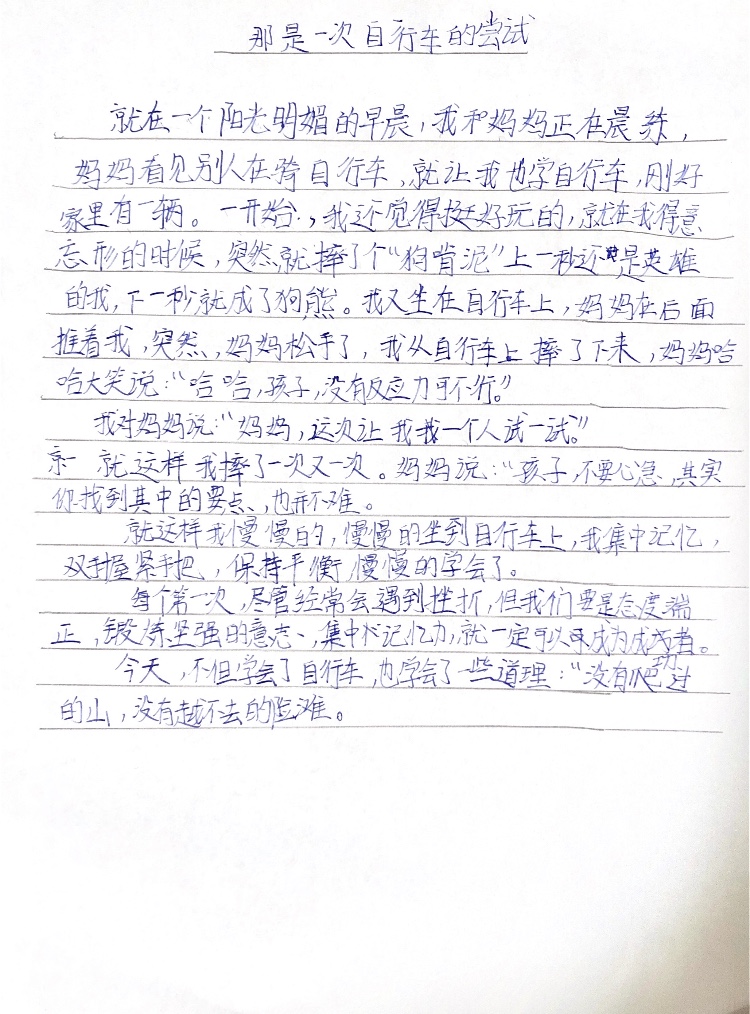 那是一次自行车的尝试
就在一个阳光明媚的早晨，我和妈妈正在晨练，
妈妈看见别人在骑自行车，就让我也学自行车，刚好
家里有一辆。一开始，我还觉得挺好玩的，就在我得意
忘形的时候，突然，就摔了个“狗啃泥”上一秒还是英雄
的我，下一秒就成了狗熊。我又坐在自行车上，妈妈在后面
推着我，突然，妈妈松手了，我从自行车上摔了下来，妈妈哈
哈大笑说：“哈哈，孩子，没有反应力可不行。”
我对妈妈说：“妈妈，这次让我我一个人试一试。”
就这样我摔了一次又一次。妈妈说：“孩子，不要心急，其实
你找到其中的要点，也并不难。
就这样我慢慢的，慢慢的坐到自行车上，我集中记忆，
双手握紧手把，保持平衡，慢慢的学会了。
每个第一次，尽管经常会遇到挫折，但我们要是态度端
正，锻炼坚强的意志、集中记忆力，就一定可以成为成功者。
今天，不但学会了自行车，也学会了一些道理：“没有爬不过
的山，没有越不去的险滩。